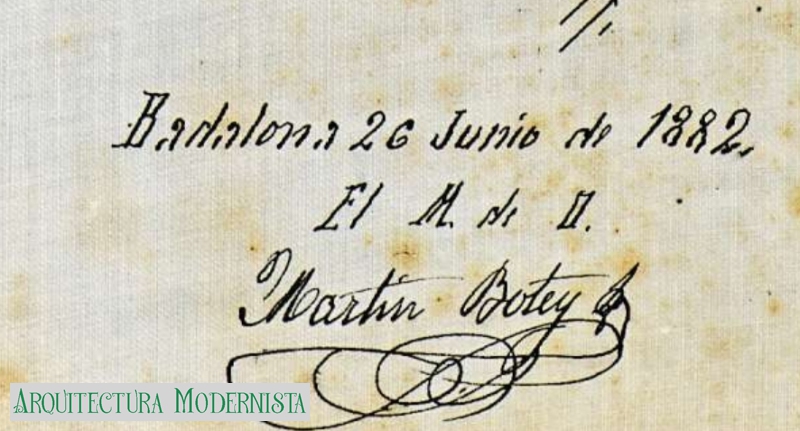 Badalona 26 Junio de 1882.
El M. de O.
Martin Botey
ARQUITECTURA MODERNISTA